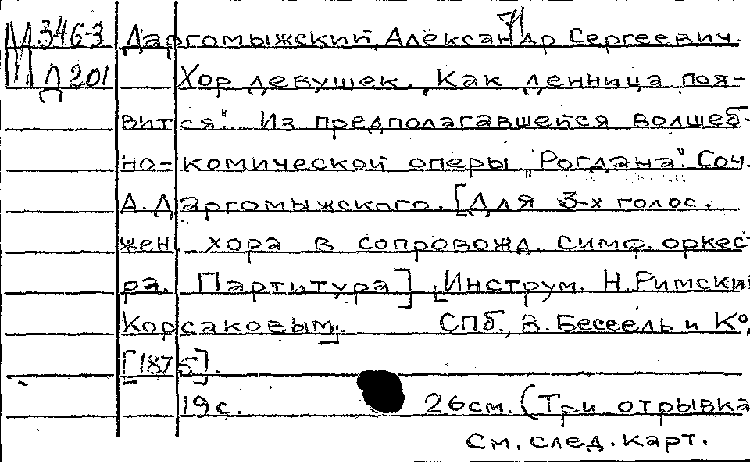 М 346-3 Даргомыжский, Александр Сергеевич.
Д 201 Хор девушек „Как денница поя-
вится". Из предполагавшейся волшеб-
но-комической оперы „Рогдана". Соч.
А. Даргомыжского. [Для 3-х голос.
жен. хора в сопровожд. симф. оркес-
ра. Партитура] [Инструм. Н. Римский
Корсаковым]. СПб., В. Бессель и К°,
[1875].
19 с. 26 см. (Три отрывка
См. след. карт.